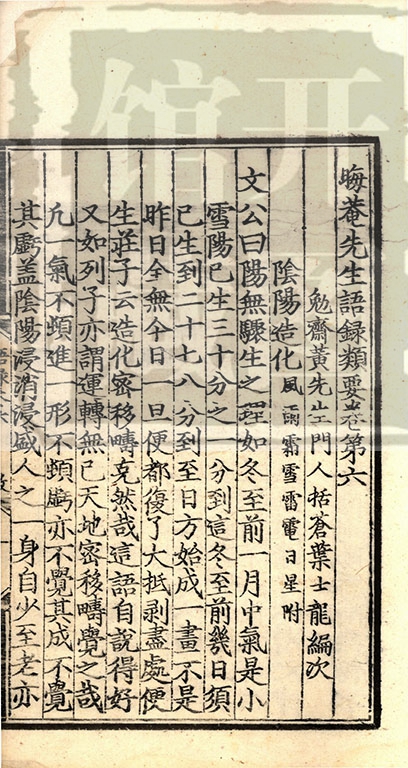 晦菴先生語録類要卷第六
勉齋黃先生門人括蒼葉士龍編次
陰陽造化 風雨霜雪雷電日星附
文公曰陽無驟生之理如冬至前一月中氣是小
雪陽已生三十分之一分到這冬至前幾日須
已生到二十七八分到至日方始成一畫不是
昨日全無今日一旦便都復了大抵剥盡處便
生莊子云造化密移疇克然哉這語自說得好
又如列子亦謂運轉無已天地密移疇覺之哉
凢一氣不頓進一形不頓虧亦不覺其成不覺
其虧盖陰陽浸消浸盛人之一身自少至老亦